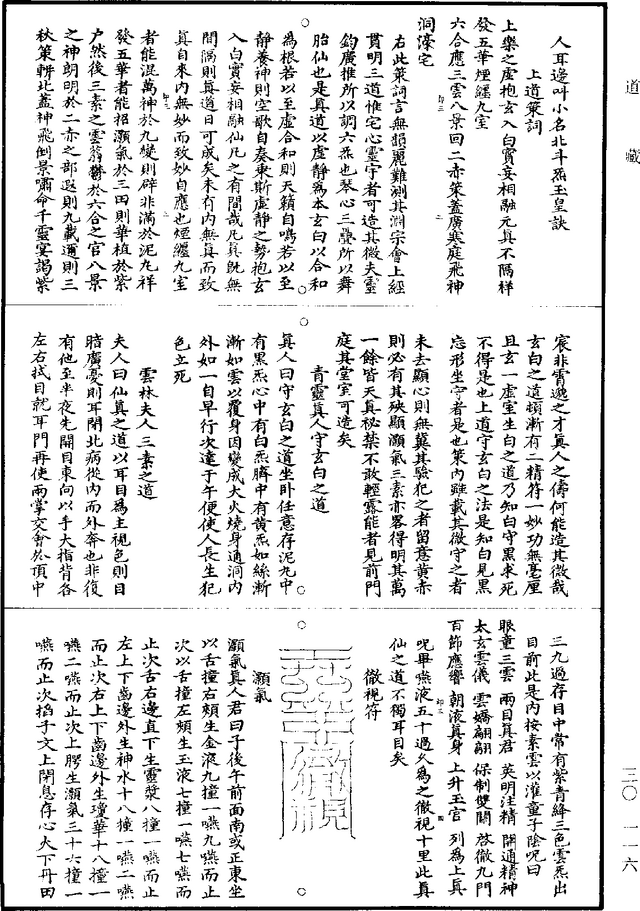 道藏
三〇　一一六
人耳邊叫小名北斗炁玉皇訣
上道策詞
上樂之虛抱玄入白實妄相融元真不隔样
發五華煙纏九室
六合應三雲八景回二赤策蓋廣寒庭飛神
洞濠宅
右此策詞言無韻麗難測其淵宗會上經
貫明三道惟宅心靈守者可造其微夫靈
鈞廣推所以調六炁也琴心三疊所以舞
胎仙也是真道以虛靜爲本玄白以合和
為根若以至虛合和則天籟自鳴若以至
靜養神則空歌自奏東斯虛靜之勢抱玄
入白實妄相融仙凡之有間哉凡真既無
間隔則真道日可成矣未有内無真而致
真自來内無妙而致妙自應也煙纏九室
者能混萬神於九變則辟非满於泥丸祥
發五華者能招灝氣於三田則華植於紫
户然後三素之雲蓊鬱於六合之宫八景
之神朗明於二赤之部遐則九載邇則三
秋策軿北蓋神飛倒景嘯命千靈宴謁紫
宸非霄邈之才真人之儔何能造其微哉
玄白之道頓漸有二精符一妙功無毫厘
且玄一虛室生白之道乃知白守黑求死
不得是也上道守玄白之法是知白見黑
忘形坐守者是也策内雖載其微守之者
未去顯心則無冀其驗犯之者留意黄赤
則必有其殃顯灝氣三素亦畧得明其萬
一餘皆天真祕禁不敢輕露能者見前門
庭其堂室可造矣
青靈真人守玄白之道
真人曰守玄白之道坐卧任意存泥九中
有黑炁心中有白炁臍中有黄炁如絲漸
漸如雲以覆身因變成大火燒身通洞内
外如一自早行次達于午便使人長生犯
色立死
雲林夫人三素之道
夫人曰仙真之道以耳目為主視色則目
暗廣憂則耳閉北病從内而外奔也非復
有他至半夜先開目東向以手大指背各
左右拭目就耳門再使兩掌交會於頂中
三九過存目中常有紫青絳三色雲炁出
目前此是内按素雲以灌童子陰呪曰
眼童三雲　兩目真君　英明注精　開通精神
太玄雲儀　雲嬌翩翩　保制雙闕　啓徹九門
百節應響　朝液真身　上升玉宫　列為上真
呪畢嚥液五十過久為之徹視十里此真
仙之道不獨耳目矣
徹視符
灝氣
灝氣真人君曰子後午前面南或正東坐
以舌撞右頰生金液九撞一嚥九嚥而止
次以舌撞左頰生玉液七撞一嚥七嚥而
止次舌右邊直下生靈漿八撞一嚥而止
左上下齒邊外生神水十八撞一嚥二嚥
而止次右上下齒邊外生瓊華十八撞一
嚥二嚥而止次上腭生灝氣三十六撞一
嚥而止次搯子文上閉息存心火下丹田